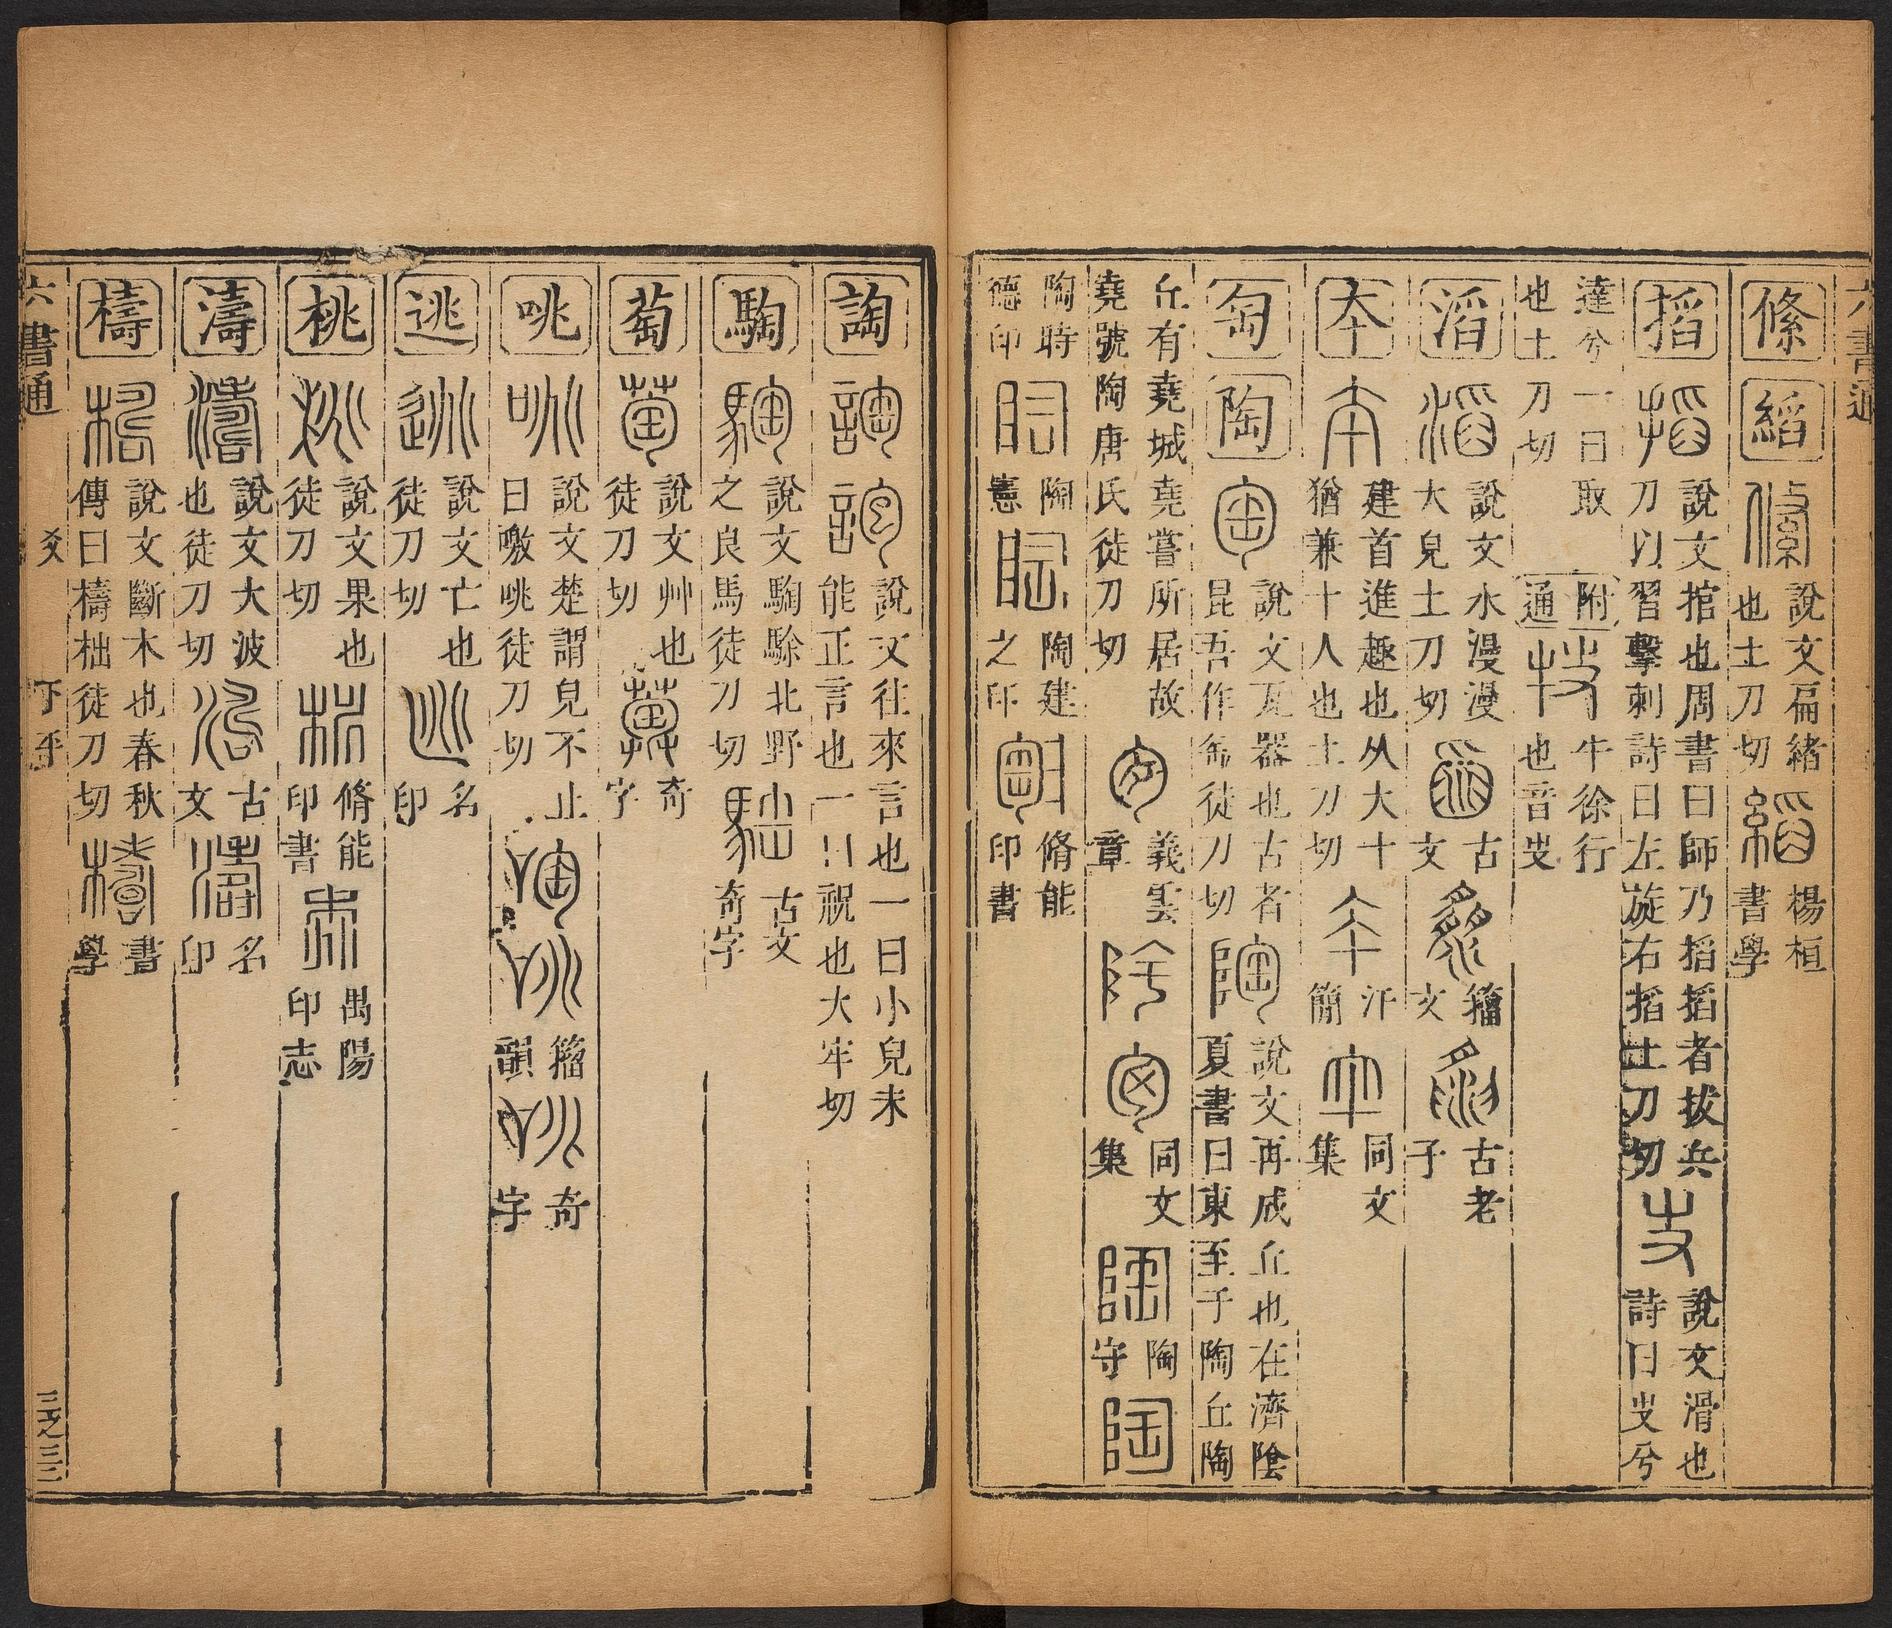 絛 縚 說文扁緒也土刀切 楊桓書學
搯 說文搯也周書曰師乃搯搯者拔兵刀以習擊刺詩曰左旋右搯土刀切 說文滑也詩曰㕜兮
達兮一曰取也土刀切 附通 牛徐行也音㕜
滔 說文水漫漫大皃土刀切 古文 籀文 古老子
夲 建首進趣也从大十猶兼十人也土刀切 汗簡 同文集
匋 陶 說文瓦器也古者昆吾作匋徒刀切 說文再成丘也在濟陰夏書曰東至于陶丘陶
丘有堯城堯嘗所居故堯號陶唐氏徒刀切 義雲章 同文集 陶守
陶時德印 陶憲 陶建之印 脩能印書
詾 說文往來言也一曰小兒未能正言也一曰祝也大牢切
騊 說文騊駼北野之良馬徒刀切 古文奇字
萄 說文艸也徒刀切 奇字
咷 說文楚謂兒不止曰噭咷徒刀切 籀韻 奇字
逃 說文亡也徒刀切 名印
桃 說文果也徒刀切 脩能印書 禺陽印志
濤 說文大波也徒刀切 古文 名印
檮 說文斷木也春秋傳曰檮柮徒刀切 書學
六書通 爻 下平 三之三三